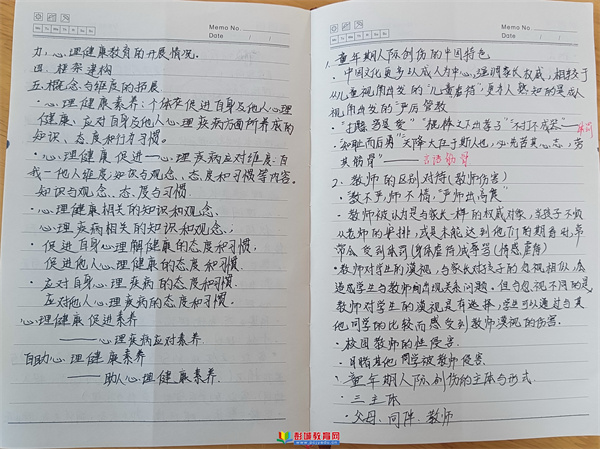 Memo No.
Mo Tu We Th Fr Sa Su
Date / /
九、心理健康教育的开展情况。
四、框架建构
五、概念与维度的拓展
·心理健康素养:个体在促进自身及他人心理
健康、应对自身及他人心理疾病方面所养成的
知识、态度和行为习惯。
·心理健康促进—心理疾病应对维度、自
我—他人维度、知识与观念、态度和习惯等内容。
知识与观念、态度与习惯.
·心理健康相关的知识和观念、
心理疾病相关的知识和观念;
·促进自身心理健康的态度和习惯,
促进他人心理健康的态度和习惯.
·应对自身心理疾病的态度和习惯.
应对他人心理疾病的态度和习惯.
心理健康促进素养
——心理疾病应对素养
自助心理健康素养
——助人心理健康素养.
Memo No.
Mo Tu We Th Fr Sa Su
Date / /
1、童年期人际创伤的中国特色
·中国文化更多以成人为中心,强调家长权威,相较于
从儿童视角出发的"儿童虐待",更为人熟知的是成人
视角出发的"严厉管教
·"打是亲骂是爱""棍棒之下出孝子""不打不成器"——体罚
·知耻而后勇"天降大任于斯人也,必先苦其心志,劳
其筋骨"——言语
2、教师的区别对待(教师伤害)
·"教不严,师不惰,"严师出高度"
·教师被认为是与家长一样的权威对象,当孩子不服
从老师的安排,或是未能达到他们的期待时,常
常会受到体罚(身体虐待)或辱骂(情感虐待)
·教师对学生的漠视,与家长对孩子的忽视相似,会
造成学生与教师间出现关系问题,但与忽视不同的是
教师对学生的漠视是有选择,学生可以通过与其
他同学的比较而感受到教师漠视的伤害.
·校园教师的性侵害.
·目睹其他同学被教师侵害.
、童年期人际创伤的主体与形式.
·三主体
·父母、同伴、教师
彭城教育网